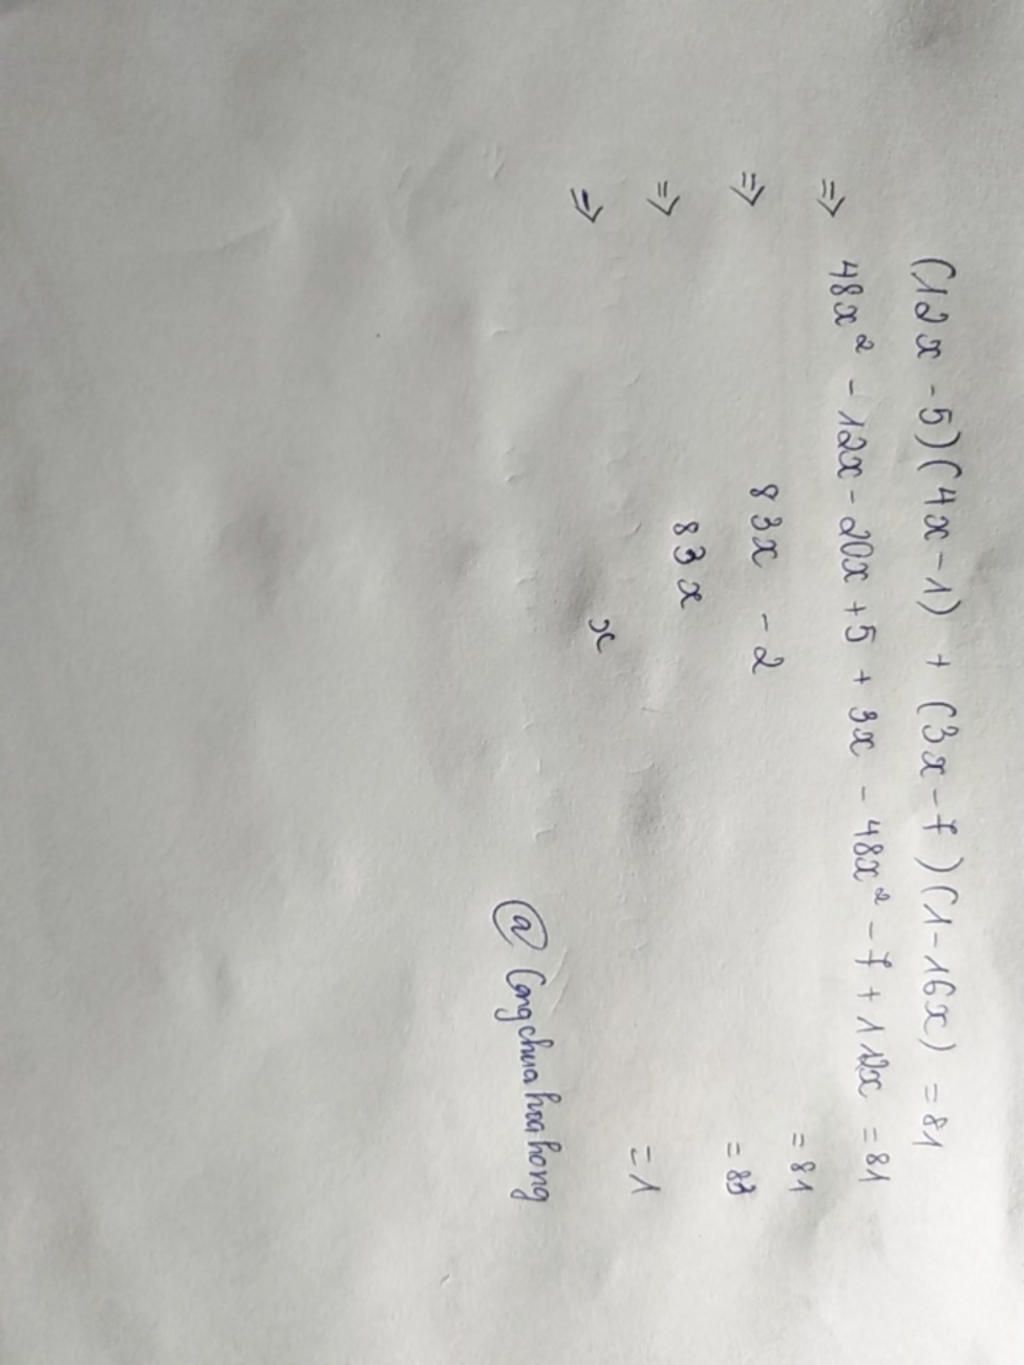 (12x - 5)(4x - 1) + (3x - 7)(1 - 16x) = 81
=> 48x² - 12x - 20x + 5 + 3x - 48x² - 7 + 112x = 81
=> 83x - 2 = 81
=> 83x = 83
=> x = 1
@Congchuahoahong